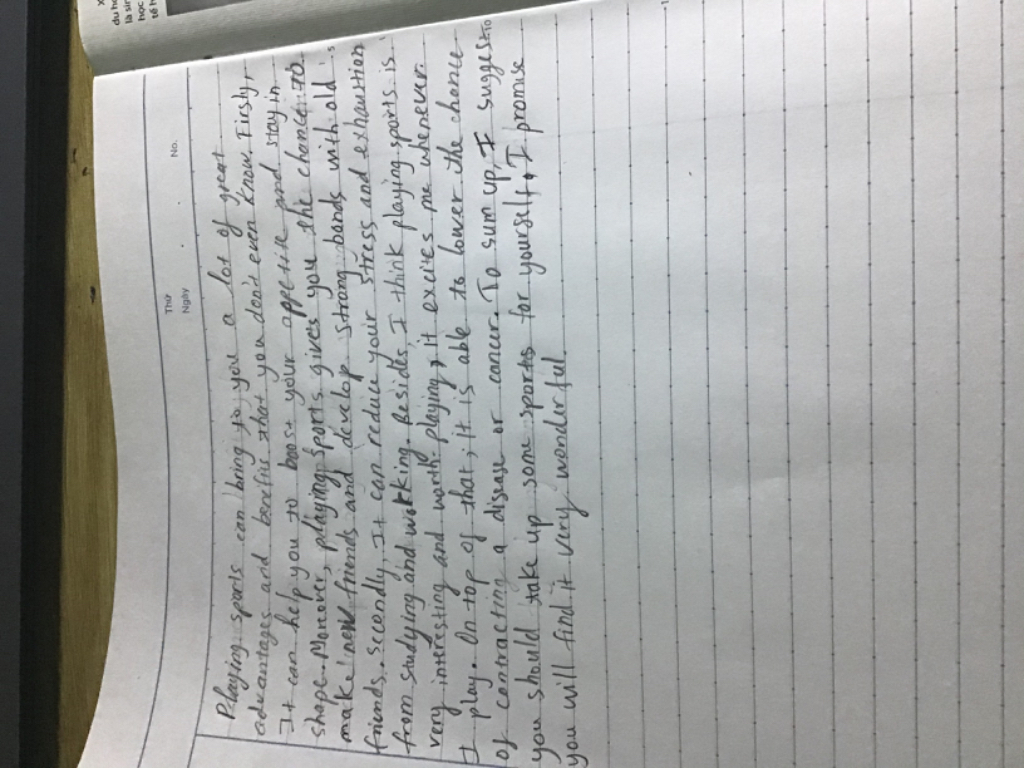 Thứ
Ngày
No.
Playing sports can bring to you a lot of great
advantages and benefits that you don't even know. Firstly,
It can help you to boost your appetite and stay in
shape. Moreover, playing sports gives you the chance to
make new friends and develop strong bonds with old
friends. Secondly, It can reduce your stress and exhaustion
from studying and working. Besides, I think playing sports is
very interesting and worth playing, it excites me whenever
I play. On top of that, it is able to lower the chance
of contracting a disease or cancer. To sum up, I suggest
you should take up some sports for yourself, I promise
you will find it very wonderful